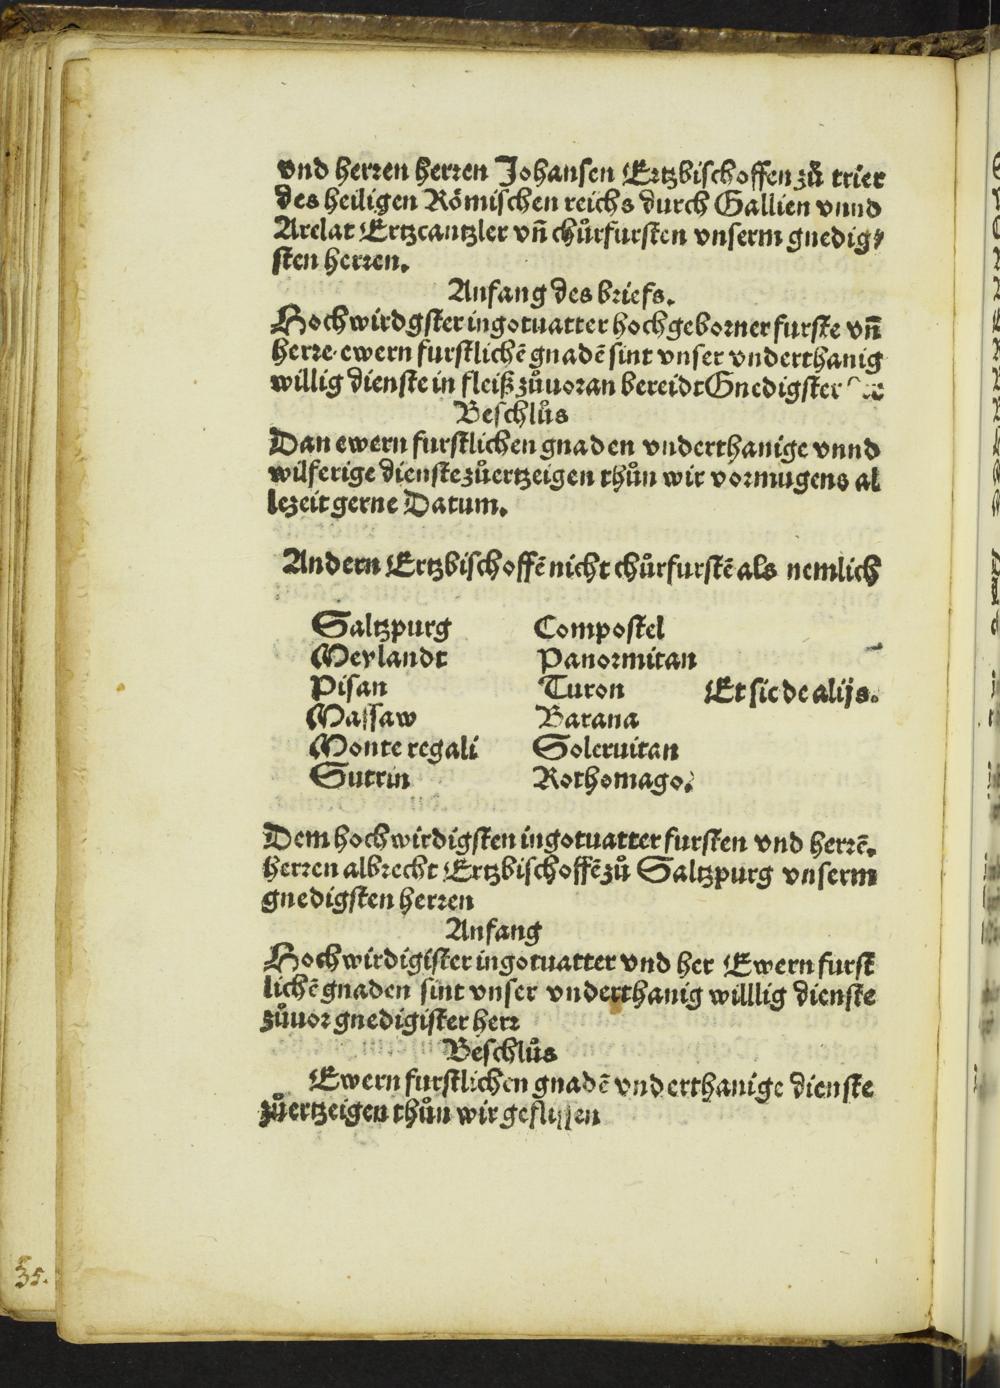 vnd herren herren Johansen Ertzbischoffen zů trier
des heiligen Römischen reichs durch Gallien vnnd
Arelat Ertzcantzler vn̄ chůrfursten vnserm gnedig⸗
sten herren.
Anfang des briefs.
Hochwirdgster in gotuatter hochgeborner furste vn̄
herre· ewern furstlichē gnadē sint vnser vnderthanig
willig dienste in fleiß zůuoran bereidt Gnedigster
Beschlůs
Dan ewern furstlichen gnaden vnderthanige vnnd
wilferige dienste zůertzeigen thůn wir vormugens al
lezeit gerne Datum.
Andern Ertzbischoffē nicht chůrfurstē als nemlich
Saltzpurg Compostel
Meylandt Panormitan
Pisan Turon Et sic de alijs.
Massaw Barana
Monte regali Soleruitan
Sutrin Rothomago.
Dem hochwirdigsten in gotuatter fursten vnd herrē.
herren albrecht Ertzbischoffē zů Saltzpurg vnserm
gnedigsten herren
Anfang
Hochwirdigister in gotuatter vnd her Ewern furst
lichē gnaden sint vnser vnderthanig willlig dienste
zůuor gnedigister herr
Beschlůs
Ewern furstlichen gnadē vnderthanige dienste
zůertzeigen thůn wir geflissen
35.